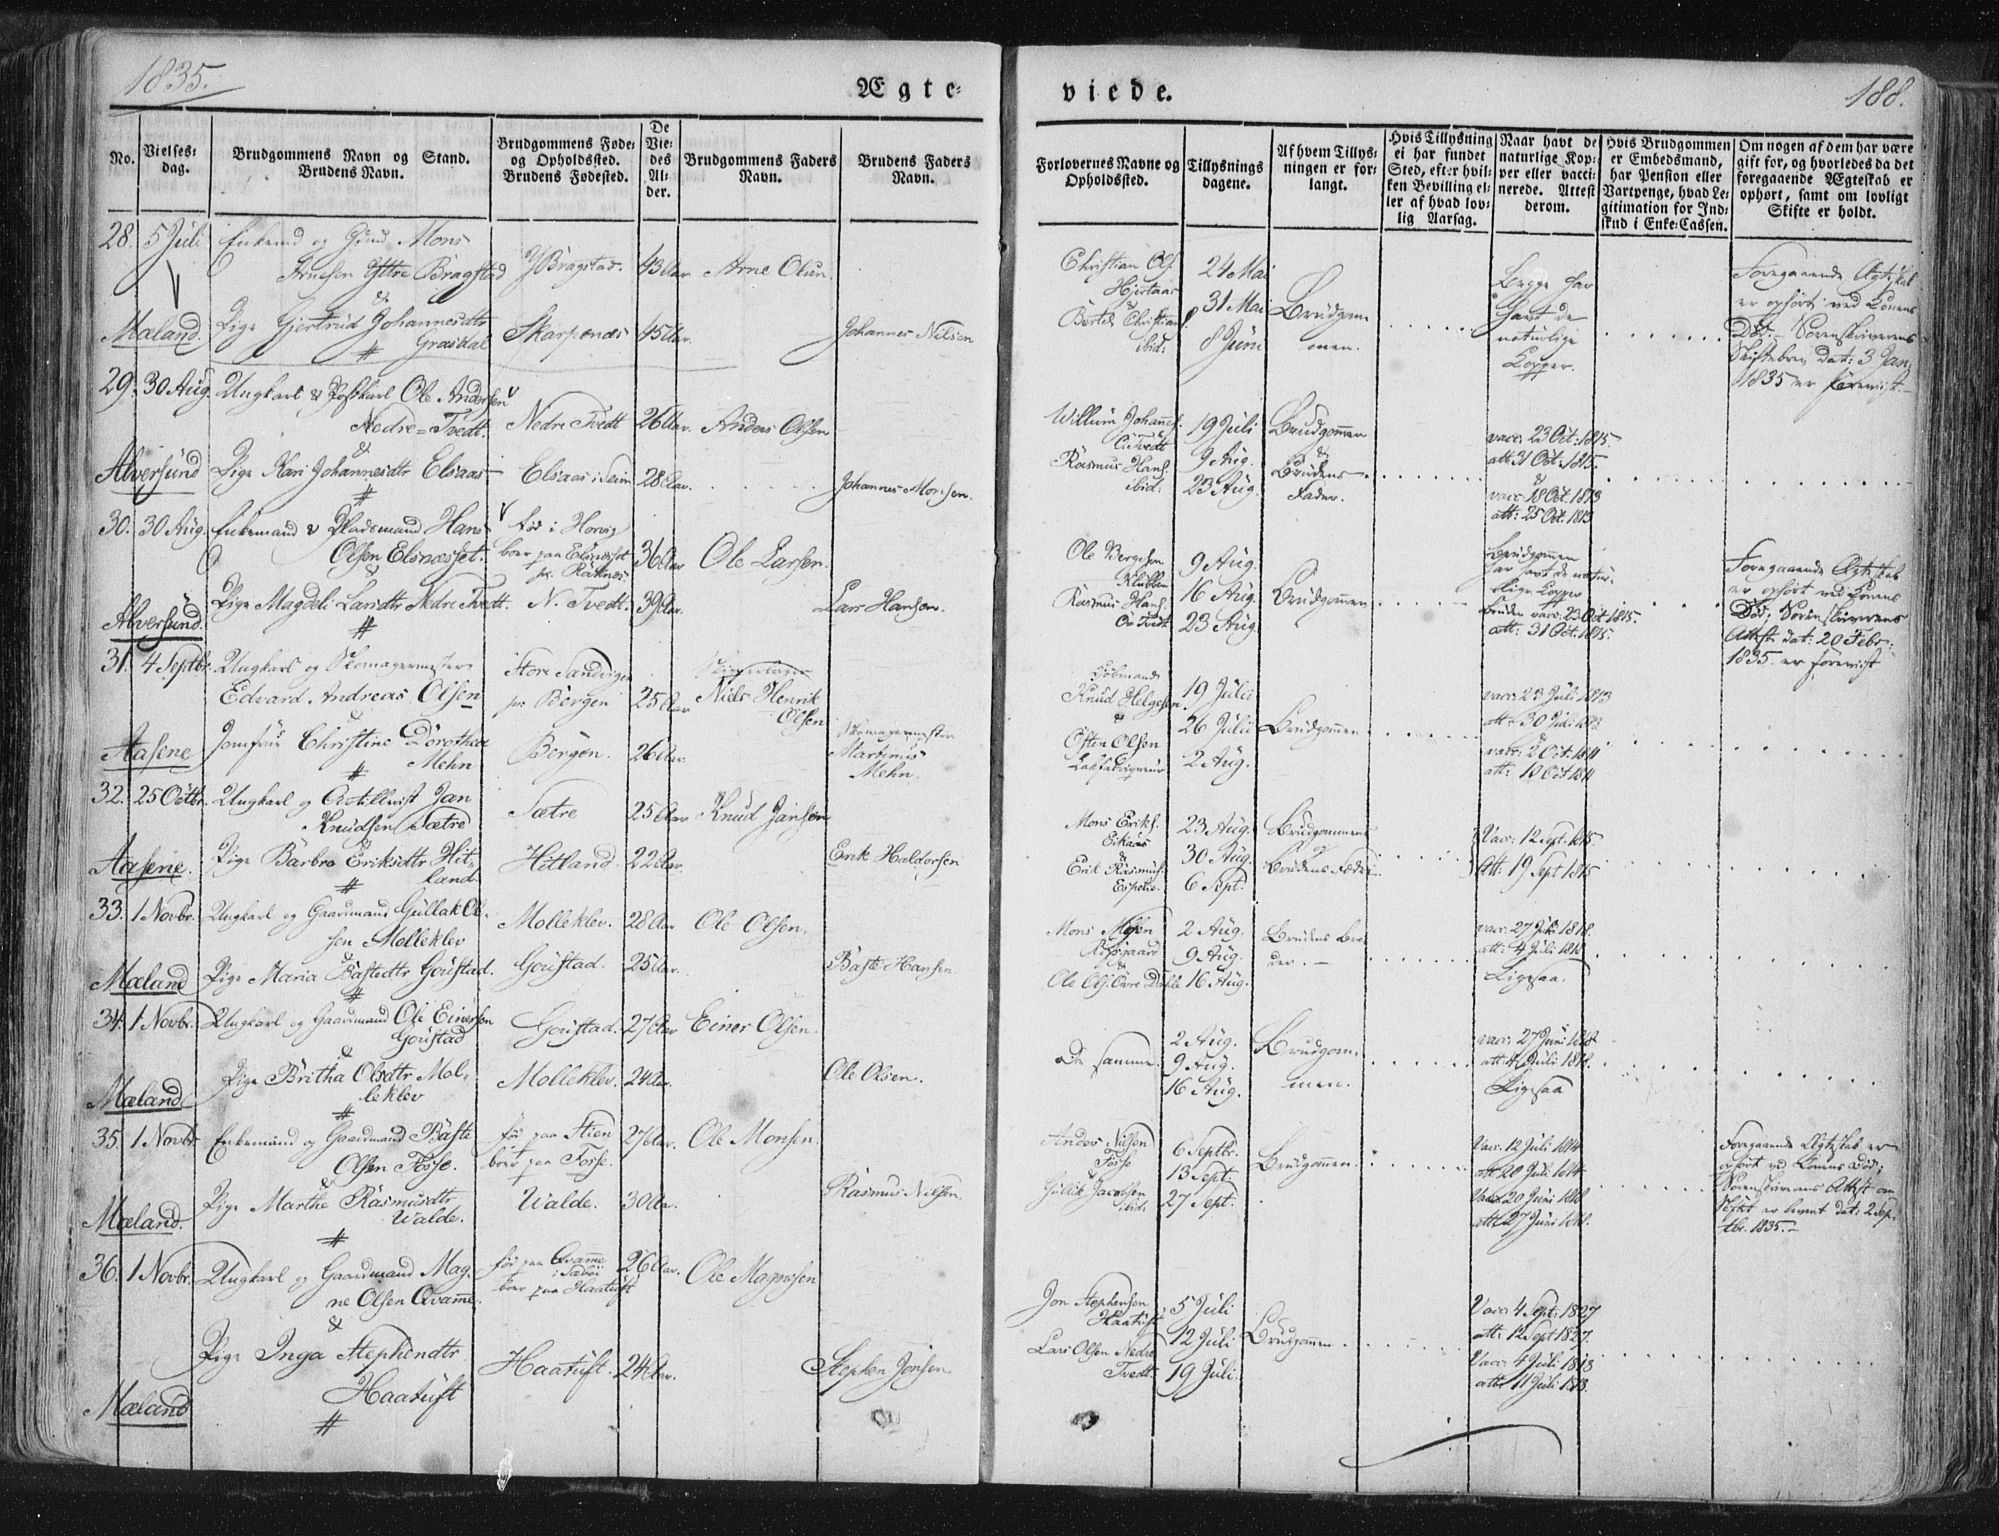 1835.
Ægte-
No.
Vielses-
dag.
Brudgommens Navn og Stand.
Brudens Navn.
Brudgommens Føde-
og Opholdssted.
Brudens Fødested.
De
Vie-
des
Al-
der.
Brudgommens Faders
Navn.
Brudens Faders
Navn.
28. 5 Juli Enkemd og Mons
Arnesen Yttre Bragstad Y Bragstad. 43 Aar Arne Olsen.
&
Mæland. Pige Gjertrud Johannesdtr Skarpenæs 45 Aar. Johannes Nilsen
Grasdal
29. 30 Aug. Ungkarl & Postkarl Ole Andersen
Nedre-Tvedt. Nedre Tvedt 26 Aar. Anders Olsen
&
Alversund Pige Kari Johannesdtr Elsaas Elsaas i Seim 28 Aar. Johannes Monsen.
30. 30 Aug. Enkemand & Pladsmand Hans fød i
Olsen Elsnæsset. boer paa Elsnæsset 36 Aar Ole Larsen.
&
Pige Magdeli Larsdtr Nedre Tvedt. N. Tvedt. 39 Aar. Lars Hansen.
Alversund.
31. 4 Septbr. Ungkarl og Skomagermester Store Sandvigen
Edvard Andreas Olsen pr Bergen 25 Aar Niels Henrik
Olsen
&
Jomfru Christine Dorothea Bergen. 26 Aar. Skomagermester
Aasene Mehn Martinus
Mehn.
32. 25 Octbr. Ungkarl og Jan Sætre 25 Aar Knud Jansen
Knudsen Sætre
&
Aasene. Pige Barbro Eriksdtr Hit- Hitland. 22 Aar. Erik Haldorsen
land.
33. 1 Novbr. Ungkarl og Gaardmand Gullak Ol- Molleklev. 28 Aar Ole Olsen.
sen Molleklev
&
Mæland Pige Maria Bastedtr Goustad. Goustad. 25 Aar. Baste Hansen.
34. 1 Novbr. Ungkarl og Gaardmand Ole Einersen Goustad. 27 Aar Einer Olsen.
Goustad
&
Pige Britha Olsdtr Mol- Molleklev. 24 Aar. Ole Olsen.
Mæland leklev
35. 1 Novbr. Enkemand og Gaardmand Baste fød paa Stien 27 Aar. Ole Monsen.
Olsen Fosse. boer paa Fosse.
Pige Marthe Rasmusdtr Walde. 30 Aar. Rasmus Nilsen.
Mæland. Walde.
36. 1 Novbr. Ungkarl og Gaardmand Mag- fød paa Qvamme 26 Aar. Ole Magnesen
ne Olsen Qvamme. boer paa Haatuft
&
Pige Inga Stephensdtr Haatuft. 24 Aar. Stephen Jonsen.
Haatuft
Mæland
viede.
188.
Forlovernes Navne og
Opholdssted.
Tillysnings
dagene.
Af hvem Tillys-
ningen er for-
langt.
Hvis Tillysning
ei har fundet
Sted, efter hvil-
ken Bevilling el-
ler af hvad lov-
lig Aarsag.
Naar havt de
naturlige Kop-
per eller vacci-
nerede. Attest
derom.
Hvis Brudgommen
er Embedsmand,
har Pension eller
Vartpenge, hvad Le-
gitimation for Ind-
skud i Enke-Cassen.
Om nogen af dem har være
gift før, og hvorledes da det
foregaaende Ægteskab er
ophørt, samt om lovligt
Skifte er holdt.
Christian Ols. 24 Mai Begge har Foregaaende Ægteskab
Hjertaas 31 Mai Brudgom- havt de er ophørt ved Konens
Bertel Christian men. naturlige Død. Sorenskriverens
ibid: 8 Juni Kopper. Skiftebrev dat: 3 Jan.
1835 er forevist.
Willum Johannes. 19 Juli Brudgommen vacc: 23 Oct: 1815
Tvedt & att: 31 Oct: 1815.
Rasmus Hans. 9 Aug. Brudens &
ibid: 23 Aug. Fader. vacc: 18 Oct. 1813
att: 25 Oct. 1813
Ole Bergesen 9 Aug. Brudgommen Foregaaende Ægteskab
Klubben har havt de natur- er ophørt ved Konens
Rasmus Hans. 16 Aug. Brudgommen lige Kopper Død; Sorenskriverens
Tvedt 23 Aug. Bruden vacc: 23 Oct. 1815. Attest dat: 20 Febr:
att: 31 Oct. 1815. 1835. er forevist
Knud Helgesen. 19 Juli vacc: 23 Juli 1813
& 26 Juli Brudgommen att: 30 Juli 1813
Østen Olsen &
2 Aug. vacc: 2 Oct. 1811
att: 10 Oct 1811
Mons Eriks. 23 Aug. Brudgommens Vacc: 12 Sept. 1815
Eikaas og
& 30 Aug. Brudens Fædre. Att: 19 Sept 1815
Erik Rasmus. 6 Sept.
Mons 2 Aug. Brudens Bro- vacc: 27 Juni 1818.
9 Aug. der. att: 4 Juli 1818
& Ligesaa.
Ole Ols. Øvre Dahle 16 Aug.
2 Aug. Brudgom- vacc: 27 Juni 1818
De samme. 9 Aug. att: 4 Juli 1818.
16 Aug. men. Ligesaa
Anders Nilsen 6 Septbr. Vacc: 12 Juli 1814 Foregaaende Ægteskab er
Fosse 13 Sept: Brudgommen. att: 20 Juli 1814 ophørt ved Konens Død;
Gullik Jacobsen 27 Sept: Vacc: 20 Juni 1818 Sorenskriverens Attest om
ibid: att: 27 Juni 1818. Skiftet er levert dat: 2 Sep-
tbr. 1835.
Jon Stephensen 5 Juli Vacc: 4 Sept: 1827
Haatuft 12 Juli Brudgommen att: 12 Sept 1827.
Lars Olsen Nedre Vacc: 4 Juli 1813
Tvedt. 19 Juli. att: 11 Juli 1813.